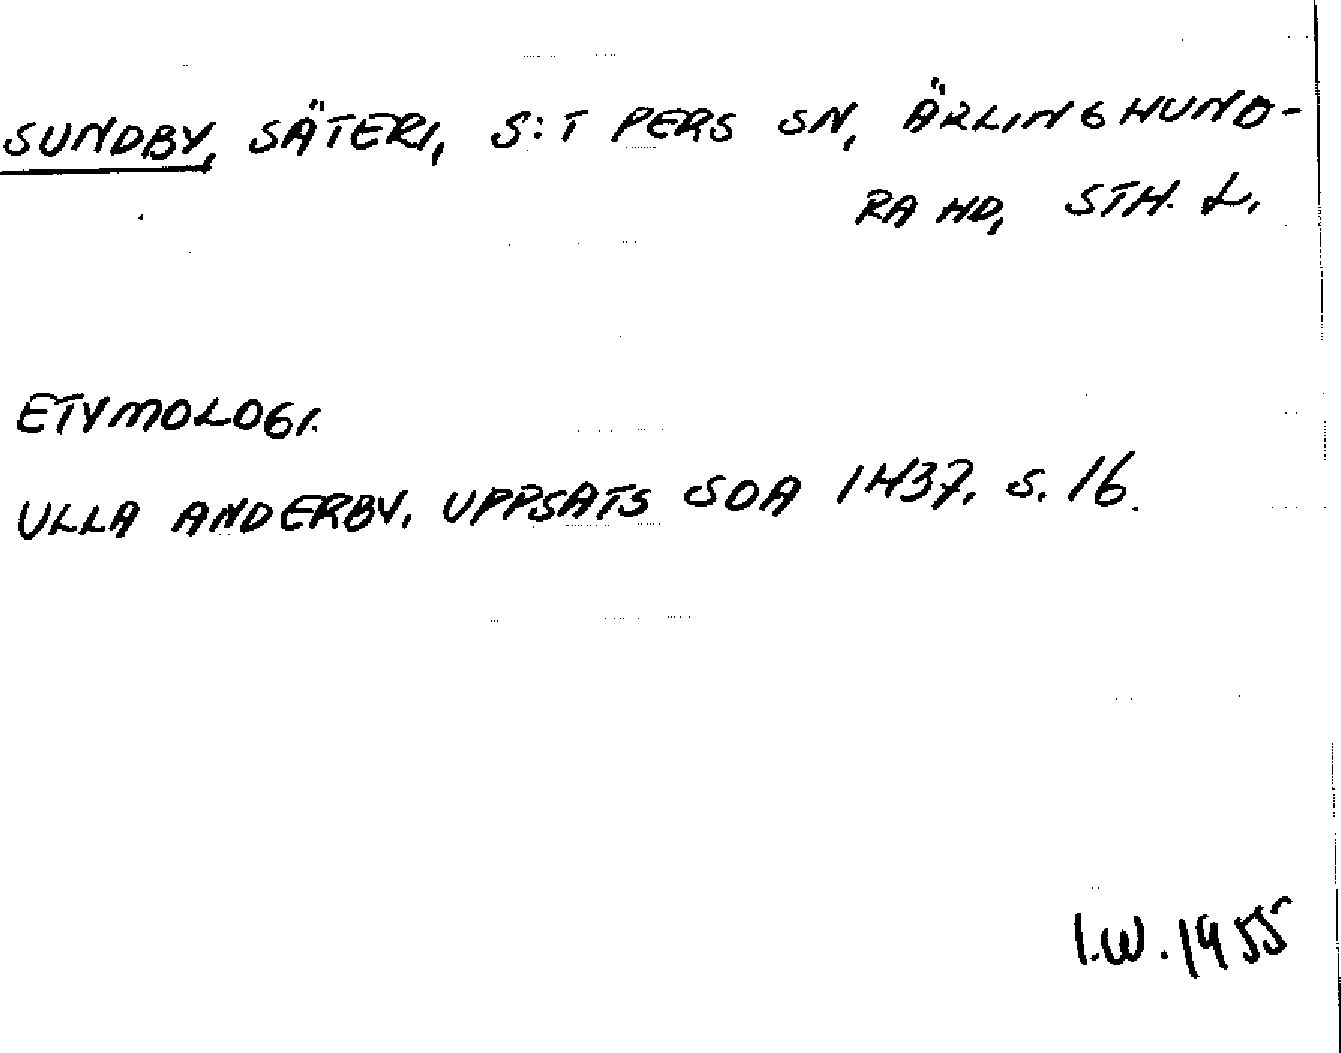 SUNDBY, SÄTERI, S:T PERS SN, ÄRLINGHUND-
RA HD, STH. L.
ETYMOLOGI.
ULLA ANDERBY. UPPSATS SOA 1437. S. 16.
I.W. 1955